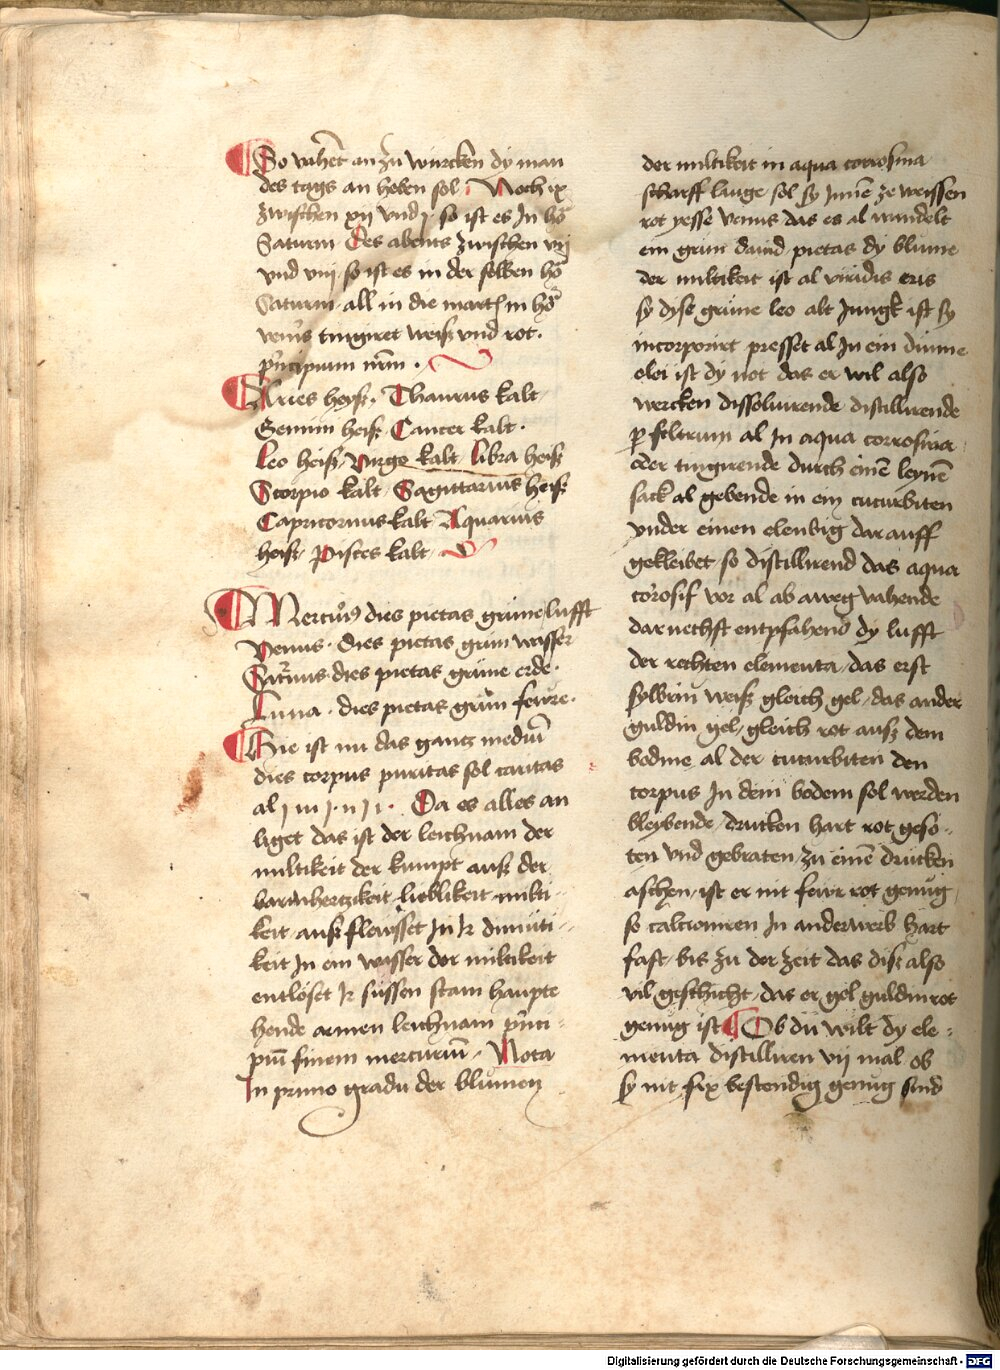 So vahet an zu würcken dy man
des tags an heben sol. Noch ix
zwischen xij vnd j so ist es In ho
Saturni Des abents zwischen vij
vnd viij so ist es in der selben ho
Saturni all in die martis in ho
vener̃s tingiret weiß vnd rot.
pͥncipium nr̃m.
Aries heyß. Thaurus kalt
Gemini heiß Cancer kalt.
Leo heiß virgo kalt libra heiß
Scorpio kalt Sagittarius heiß
Capricornus kalt Aquarius
heiß Pisces kalt
Mercur9 dies pietas grüne lufft
Venus. dies pietas grün wasser
Saturnus dies pietas grüne erde.
Luna. dies pietas grün fewre.
Hie ist nu das gantz mediu̅
dies corpus puritas sol caritas
al Da es alles an
liget das ist der leichnam der
miltikeit der kumpt auß der
barmhertzikeit lieblikeit milti
keit auß fleusset In Ir dimüti
keit In ein wasser der miltikeit
entlöset Ir süssen stam haupte
hende armen leichnam pͥnci
piu̅ finem mercuriu̅. Nota
In primo gradu der blumen
der miltikeit in aqua corrosiua
scharff lauge sol sy Inne̅ ze weissen
rot yesse venus das es al wandelt
ein grun dauid pietas dy blume
der miltikeit ist al viridis eris
sy dise grüne leo alt Jungk ist sy
incorporirt presset al In ein dinne
olei ist dy not das er wil also
wercken dissoluirende distillirende
p̱ filtrum al In aqua corrosiua
oder tingirende durch eine̅ leyne̅
sack al gebende in ein cucurbiten
vnder einen elenbig dar auff
gekleibet so distillirend das aqua
corosif vor al ab aweg vahende
dar nechst entpfahend dy lufft
der rechten elementa das erst
sylbrin weiß gleich gel das ander
guldin gel gleich rot auß dem
bodme al der cucurbiten den
corpus In dem bodem sol werden
bleybende drucken hart rot geso
ten vnd gebraten zu eine̅ drucken
aschen ist er nit fewr rot genüg
so calcioniren In anderweib hart
fast bis zu der zeit das diß also
vil geschicht das er gel guldin rot
genüg ist Ob dü wilt dy ele
menta distilliren vij mal ob
sy nit fix bestendig genüg sind
Digitalisierung gefördert durch die Deutsche Forschungsgemeinschaft - DFG